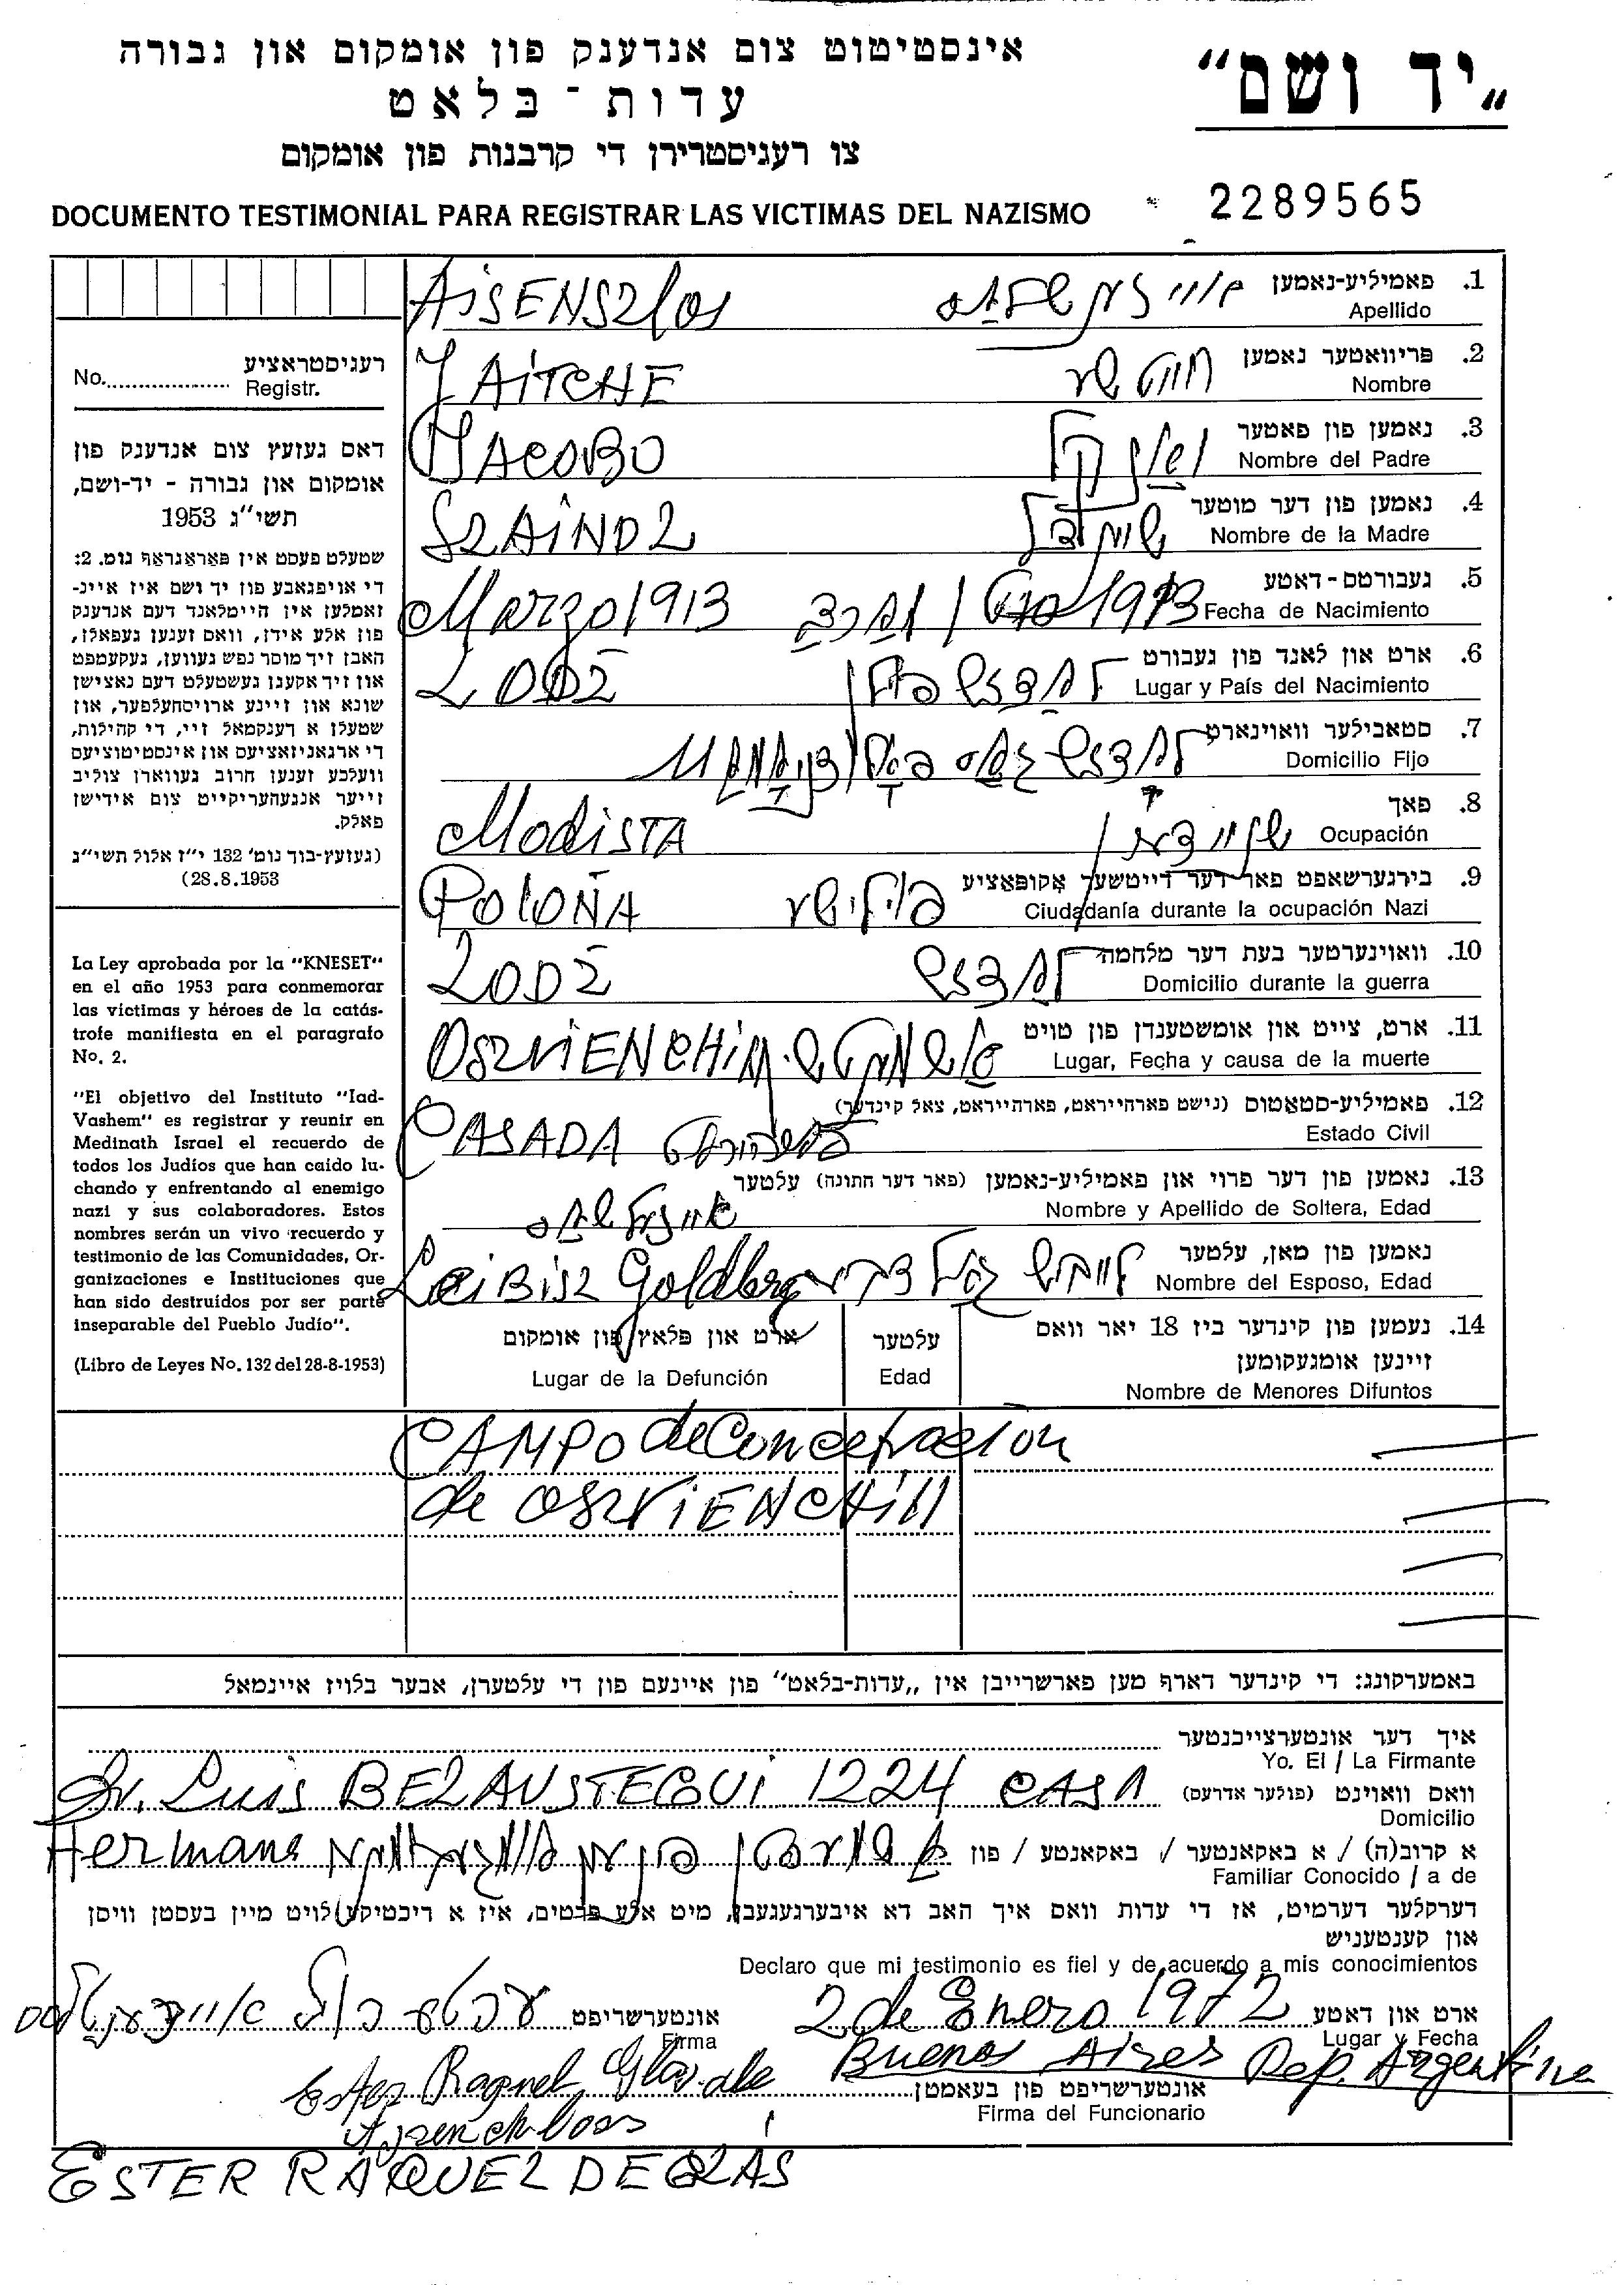 „יד ושם“
אינסטיטוט צום אנדענק פון אומקום און גבורה
עדות־בלאט
צו רעגיסטרירן די קרבנות פון אומקום
DOCUMENTO TESTIMONIAL PARA REGISTRAR LAS VICTIMAS DEL NAZISMO
2289565
רעגיסטראציע
No. Registr.
דאס געזעץ צום אנדענק פון
אומקום און גבורה - יד-ושם,
תשי"ג 1953
שטעלט פעסט אין פאראגראף נומ. 2:
די אויפגאבע פון יד ושם איז איינ-
זאמלען אין היימלאנד דעם אנדענק
פון אלע אידן, וואס זענען געפאלן,
האבן זיך מוסר נפש געווען, געקעמפט
און זיך אקעגן געשטעלט דעם נאצישן
שונא און זיינע ארויסהעלפער, און
שטעלן א דענקמאל זיי, די קהילות,
די ארגאניזאציעס און אינסטיטוציעס
וועלכע זענען חרוב געווארן צוליב
זייער אנגעהעריקייט צום אידישן
פאלק.
(געזעץ-בוך נומ' 132 י"ז אלול תשי"ג
28.8.1953)
La Ley aprobada por la "KNESET"
en el año 1953 para conmemorar
las víctimas y héroes de la catás-
trofe manifiesta en el paragrafo
No. 2.
"El objetivo del Instituto "Iad-
Vashem" es registrar y reunir en
Medinath Israel el recuerdo de
todos los Judíos que han caído lu-
chando y enfrentando al enemigo
nazi y sus colaboradores. Estos
nombres serán un vivo recuerdo y
testimonio de las Comunidades, Or-
ganizaciones e Instituciones que
han sido destruídos por ser parte
inseparable del Pueblo Judío".
(Libro de Leyes No. 132 del 28-8-1953)
1. פאמיליע-נאמען
Apellido
AiSENSZlos
2. פריוואטער נאמען
Nombre
JAiTCHE
3. נאמען פון פאטער
Nombre del Padre
JACOBO יאנקל
4. נאמען פון דער מוטער
Nombre de la Madre
SZAiNDL שיינדל
5. געבורטס-דאטע
Fecha de Nacimiento
Marzo 1913 1913
6. ארט און לאנד פון געבורט
Lugar y País del Nacimiento
LODZ לאדזש פוילן
7. סטאבילער וואוינארט
Domicilio Fijo
לאדזש
8. פאך
Ocupación
ModiSTA
9. בירגערשאפט פאר דער דייטשער אקופאציע
Ciudadanía durante la ocupación Nazi
POLOÑA פוילישע
10. וואוינערטער בעת דער מלחמה
Domicilio durante la guerra
LODZ לאדזש
11. ארט, צייט און אומשטענדן פון טויט
Lugar, Fecha y causa de la muerte
OSZViENCHiM
12. פאמיליע-סטאטוס (נישט פארהייראט, פארהייראט, צאל קינדער)
Estado Civil
CASADA
13. נאמען פון דער פרוי און פאמיליע-נאמען (פאר דער חתונה) עלטער
Nombre y Apellido de Soltera, Edad
נאמען פון מאן, עלטער
Nombre del Esposo, Edad
LeiBiSZ Goldberg לייביש גאלדבערג
14. נעמען פון קינדער ביז 18 יאר וואס
זיינען אומגעקומען
Nombre de Menores Difuntos
עלטער
Edad
ארט און פלאץ פון אומקום
Lugar de la Defunción
CAMPO de Concetracion
de OSZViENCHiM
באמערקונג: די קינדער דארף מען פארשרייבן אין „עדות-בלאט“ פון איינעם פון די עלטערן, אבער בלויז איינמאל
איך דער אונטערצייכנטער
Yo. El / La Firmante
וואס וואוינט (פולער אדרעס)
Domicilio
Dr. Luis BELAUSTEGUi 1224 CASA
א קרוב(ה) / א באקאנטער / באקאנטע / פון
Familiar Conocido / a de
Hermana
דערקלער דערמיט, אז די עדות וואס איך האב דא איבערגעגעבן, מיט אלע פרטים, איז א ריכטיקע לויט מיין בעסטן וויסן
און קענטעניש
Declaro que mi testimonio es fiel y de acuerdo a mis conocimientos
ארט און דאטע
Lugar y Fecha
2 de Enero 1972
Buenos Aires Rep. Argentina
אונטערשריפט
Firma
Ester Raquel Glas de
Ajzenchloos
אונטערשריפט פון באאמטן
Firma del Funcionario
ESTER RAQUEL DE GLÁS